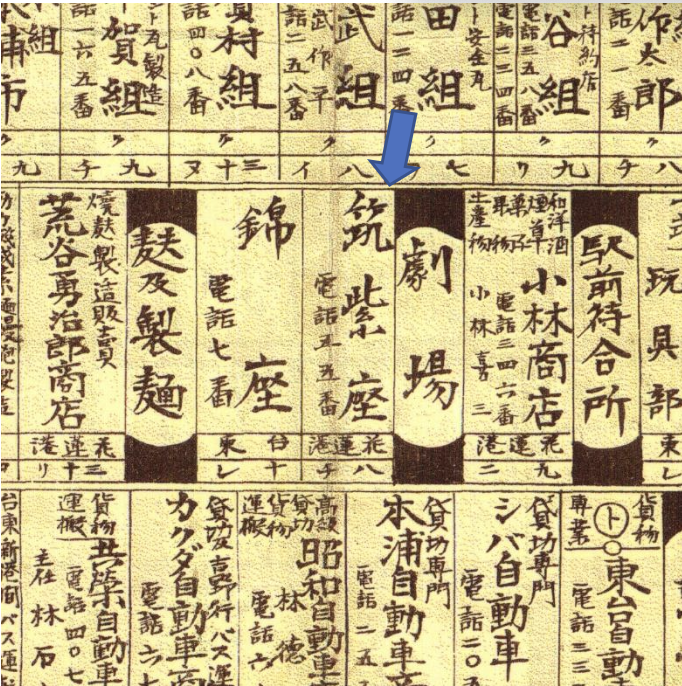 作太郎
電話二一番
ト特約店
谷組
電話三五八番
電話二三四番
ト安全瓦
田組
電話一二四番
武組
武作平
電話二五八番
眞村組
電話四〇八番
ト瓦製造
賀組
電話一六五番
組
本浦市
ク
ク
ク
ク
チ 八
ワ 九
リ 七
イ 八
ヌ 十三
チ 九
九
玩具部
東
レ
駅前待合所
和洋酒
煙草
菓子
果物
土産物
小林商店
電話三四六番
小林喜三
花蓮港
九二
劇場
筑紫座
電話五五番
花蓮港
八チ
錦座
電話七番
台東
十レ
麩及製麺
燒麩製造販賣
荒谷勇治郎商店
花蓮港
三十リ
貨物
専業
ト
東台自動
電話三三
貸切專門
シバ自動車
電話二〇五
貸切專門
本浦自動車商
電話二五
高級
貸切
貨物
運搬
昭和自動車
林德
電話六
貸切及吉野行バス運
カクダ自動車商
電話六七
貨物
運搬
共榮自動車
電話四〇七
主任 林石
台東新港間バス運